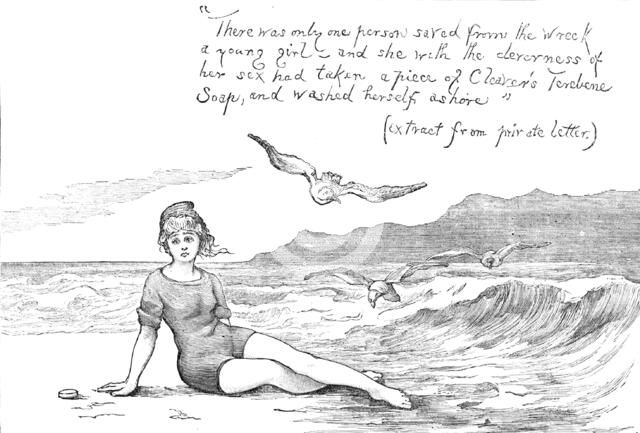 "There was only one person saved from the wreck
a young girl – and she with the cleverness of
her sex had taken a piece of Cleaver's Terebene
Soap, and washed herself ashore"
(extract from private letter.)